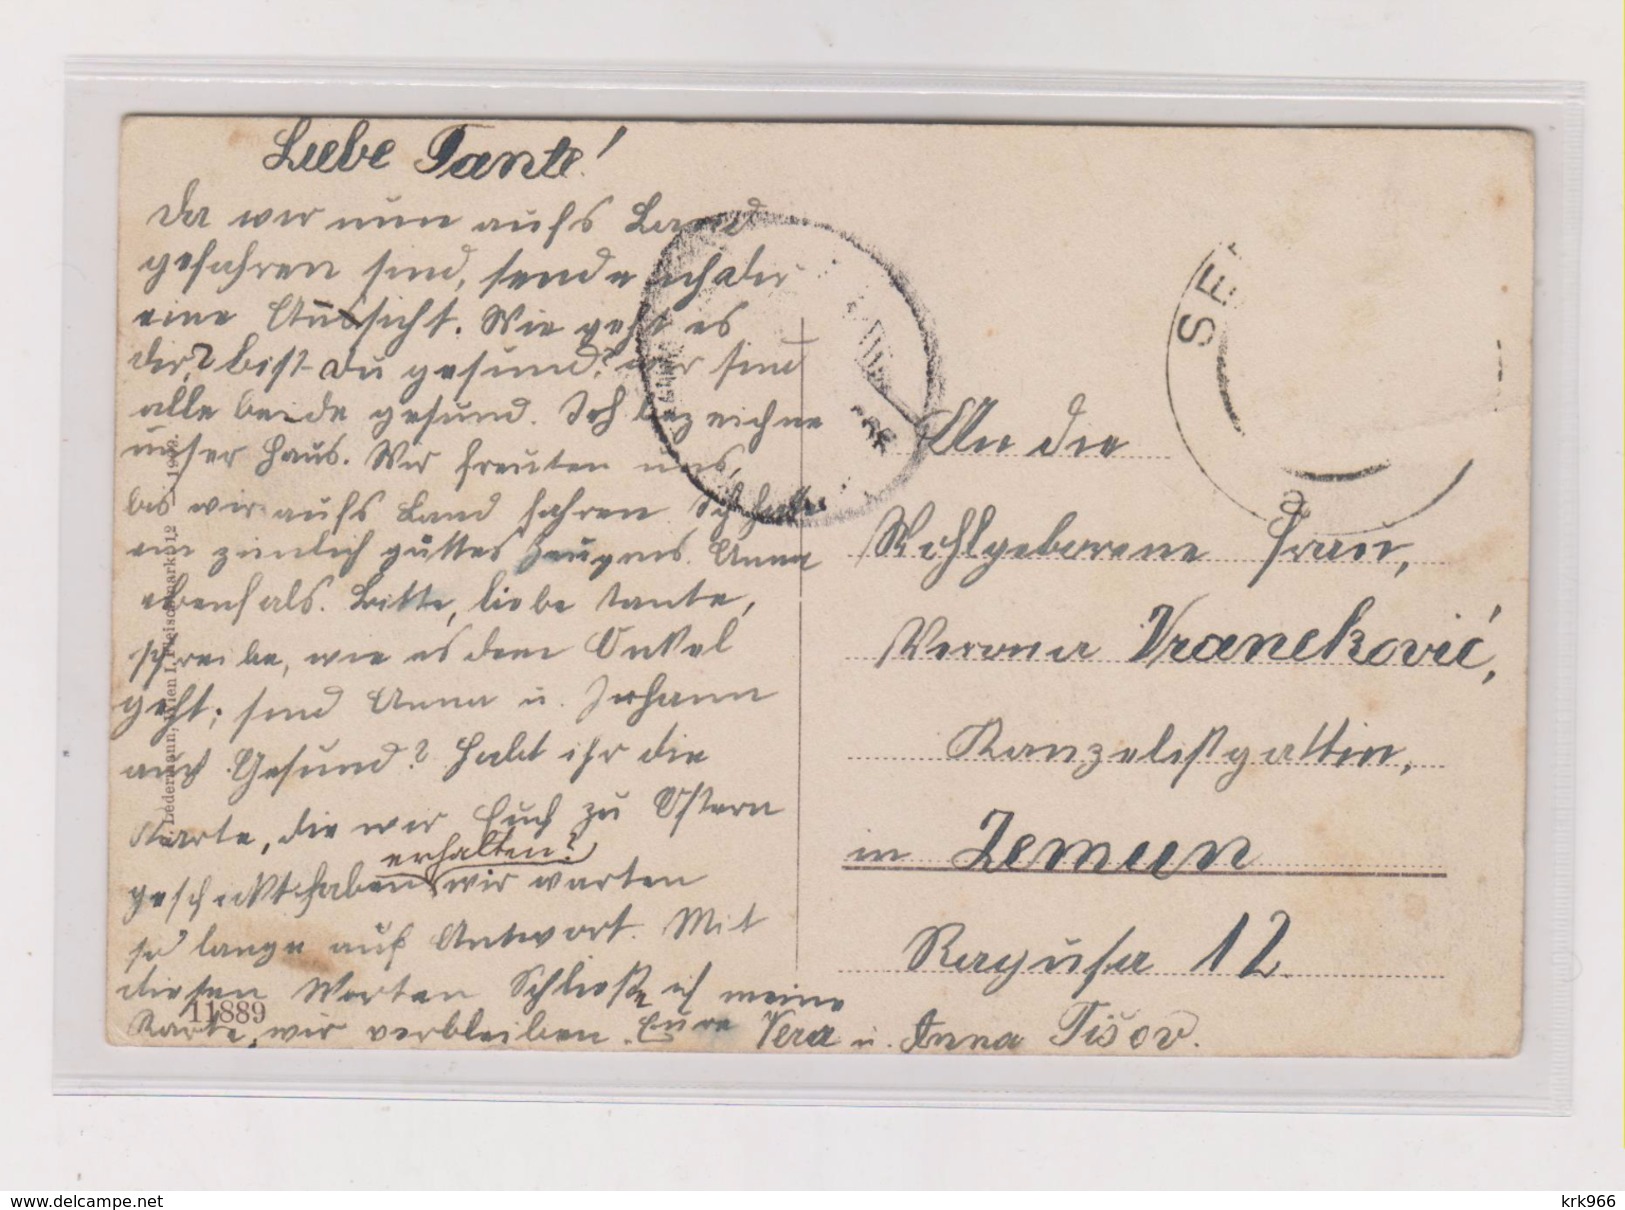 Liebe Tante!
Da wir nun aufs Land
gefahren sind, sende ich dir
eine Aussicht. Wie geht es
dir? bist Du gesund? wir sind
alle beide gesund. Ich bezeichne
unser Haus. Wir freuten uns,
bis wir aufs Land fahren. Ich hatte
ein zimlich guttes Zeugnis. Anna
ebenfals. Bitte, liebe Tante,
schreibe, wie es dem Onkel
geht; sind Anna u. Johann
auch Gesund? Habt ihr die
Karte, die wir Euch zu Ostern
erhalten?
geschickt haben wir warten
so lange auf Antwort. Mit
diesen Worten Schließe ich meine
Karte, wir verbleiben. Eure Vera u. Anna Tišov.
An die
Wohlgeborene Frau,
Verona Vraneković,
Kanzelistgattin,
in Zemun
Ragusa 12.
SE
Ledermann, Wien I, Fleischmarkt 12
11889
krk966
www.delcampe.net